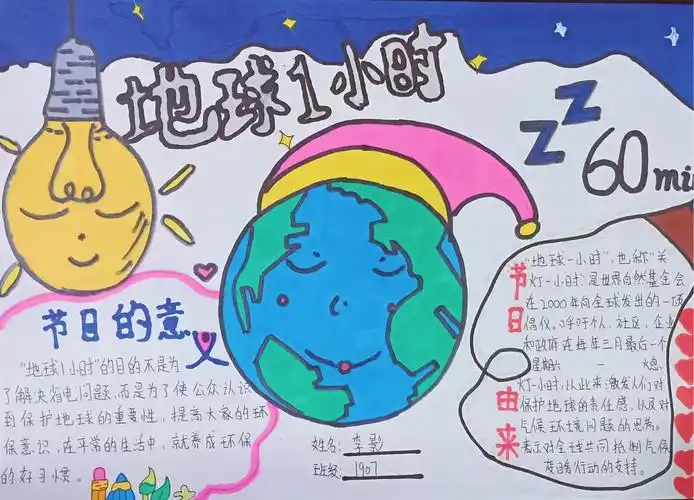 地球1小时
ZZ
60min
节日的意义
"地球1小时"的目的不是为
了解决省电问题,而是为了使公众认识
到保护地球的重要性,提高大家的环
保意识,在平常的生活中,就养成环保
的好习惯。
姓名:李影
班级:1907
节日由来
"地球一小时",也称"关
灯一小时"是世界自然基金会
在2000年向全球发出的一项
倡仪。呼吁个人,社区,企业
和政府在每年三月最后一个
星期六 一 熄
灯一小时,从此来激发人们对
保护地球的责任感,以及对
气候环境问题的思考。
表示对全球共同抵制气候
变暖行动的支持。